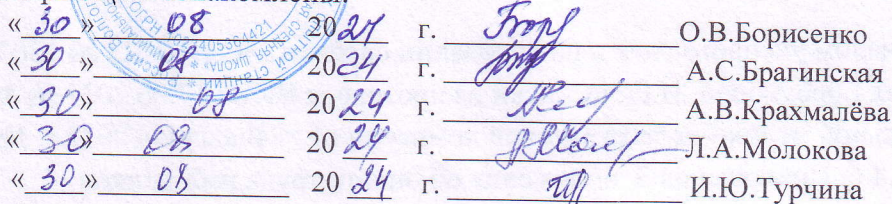 «30» 08 2024 г. О.В.Борисенко
«30» 08 2024 г. А.С.Брагинская
«30» 08 2024 г. А.В.Крахмалёва
«30» 08 2024 г. Л.А.Молокова
«30» 08 2024 г. И.Ю.Турчина